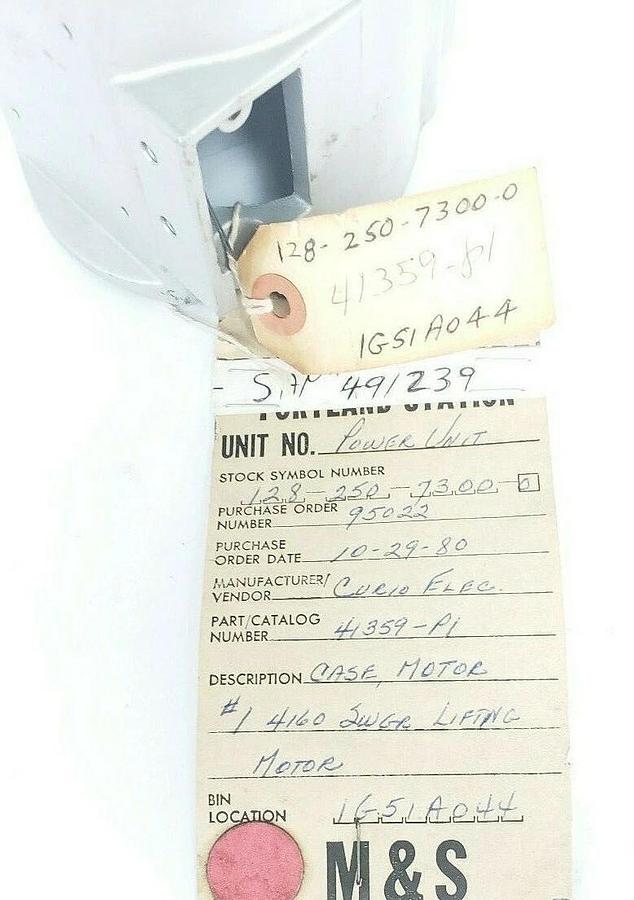 128-250-7300-0
41359-p1
1G51A044
491239
PORTLAND STATION
UNIT NO. POWER UNIT
STOCK SYMBOL NUMBER
128-250-7300-0
PURCHASE ORDER NUMBER 95022
PURCHASE ORDER DATE 10-29-80
MANUFACTURER/
VENDOR CURIO ELEC.
PART/CATALOG
NUMBER 41359-P1
DESCRIPTION CASE, MOTOR
#1 4160 SWGR LIFTING
MOTOR
BIN
LOCATION 1G51A044
M&S